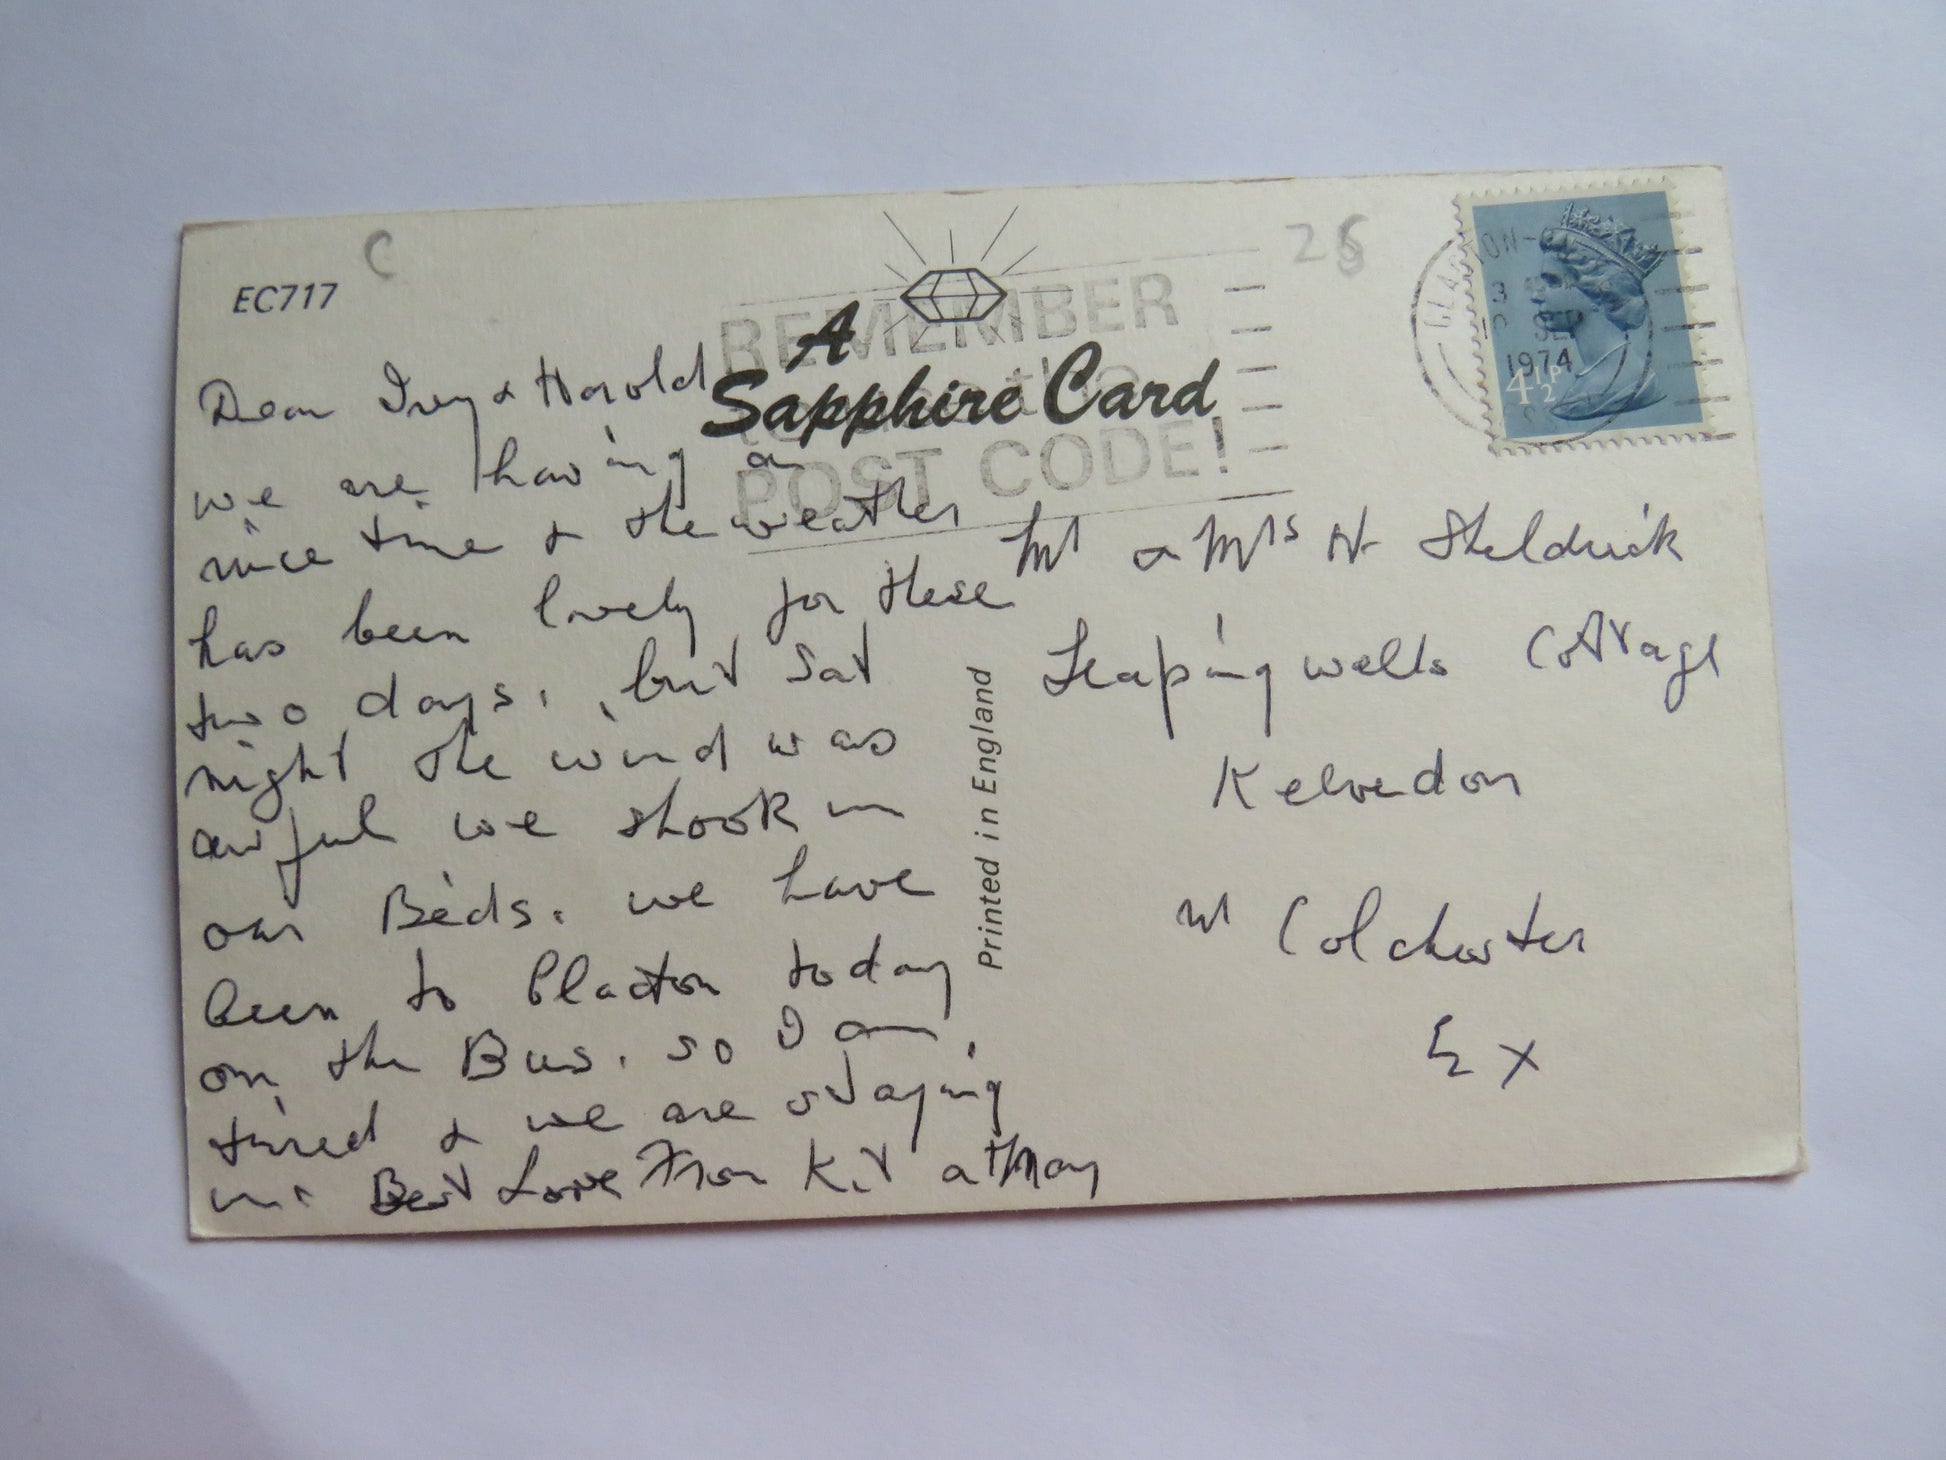 EC717
C
A
Sapphire Card
REMEMBER
to use the
POST CODE!
CLACTON-
SEP
1974
4½P
Dear Ivy & Harold
we are having a
nice time & the weather
has been lovely for these
two days, but Sat
night the wind was
awful we shook in
our Beds. we have
been to Clacton today
on the Bus. so I am
tired & we are staying
in. Best Love From Kit & May
Mr & Mrs H Sheldrick
Leapingwells Cottage
Kelvedon
Nr Colchester
Ex
Printed in England